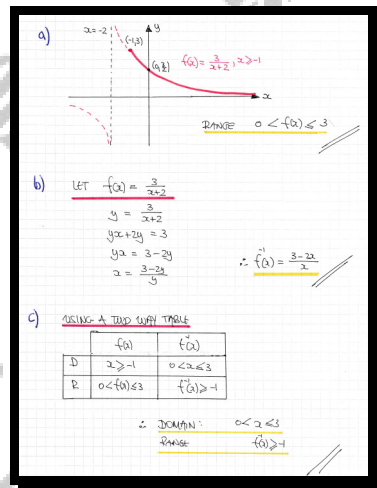 a)
x=-2
y
(-1,3)
(0,3/2)
f(x) = 3/(x+2), x ≥ -1
x
RANGE 0 < f(x) ≤ 3
b)
LET f(x) = 3/(x+2)
y = 3/(x+2)
yx+2y = 3
yx = 3-2y
x = (3-2y)/y
∴ f⁻¹(x) = (3-2x)/x
c)
USING A TWO WAY TABLE
f(x) f⁻¹(x)
D x ≥ -1 0<x≤3
R 0<f(x)≤3 f⁻¹(x) ≥ -1
∴ DOMAIN: 0< x ≤3
RANGE f⁻¹(x) ≥ -1